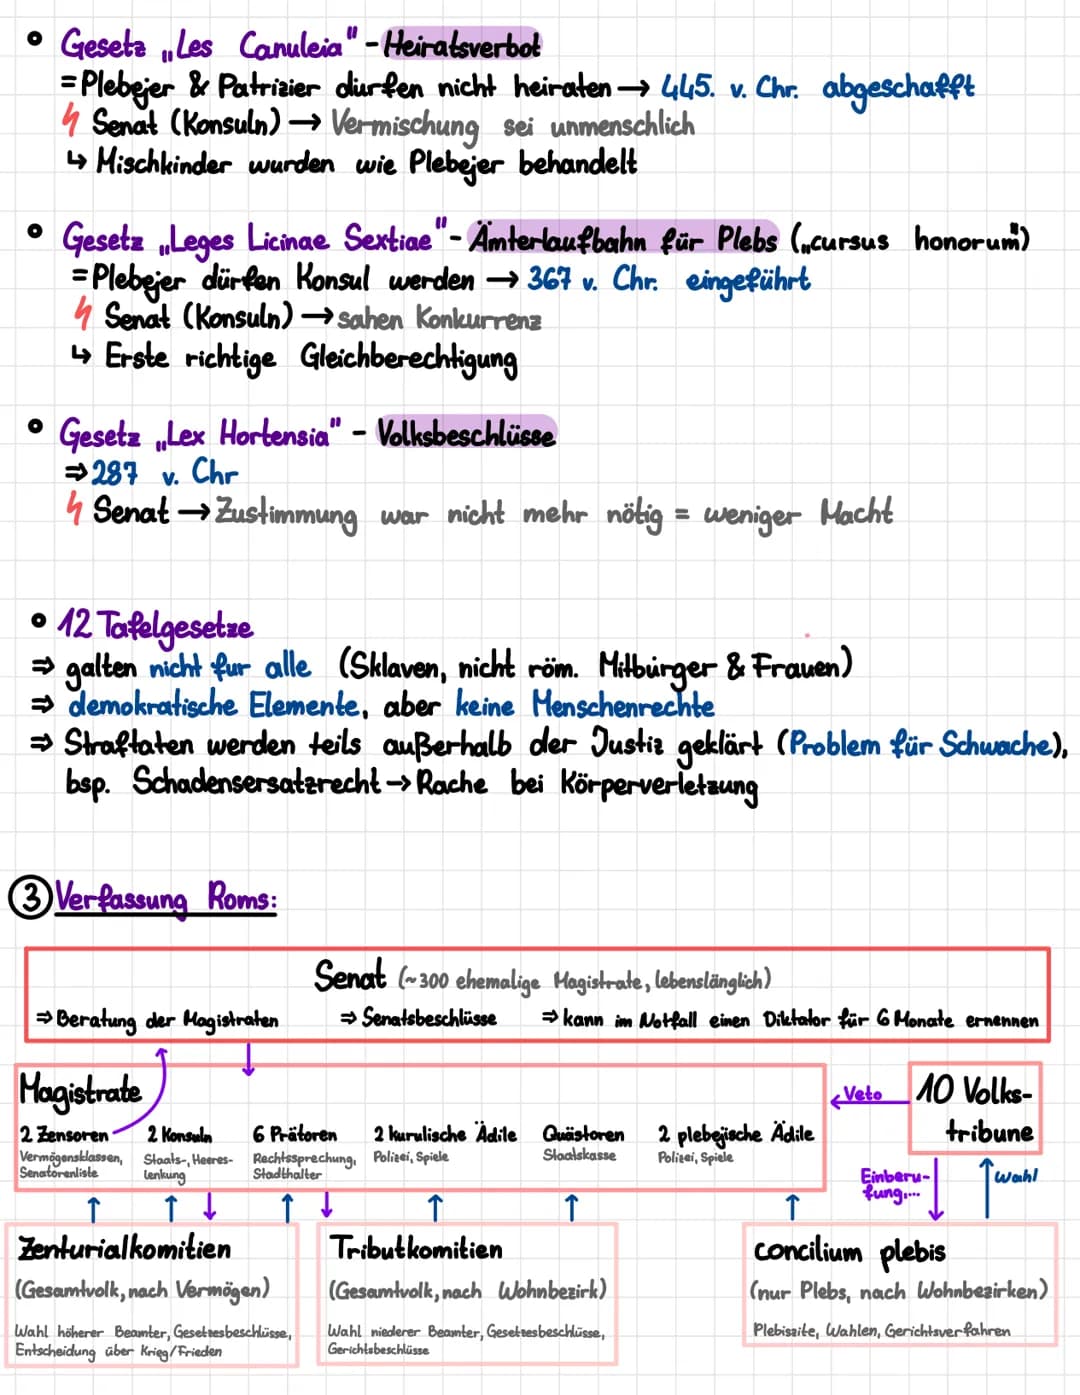 ° Gesetz „Les Canuleia" - Heiratsverbot
= Plebejer & Patrizier dürfen nicht heiraten → 445. v. Chr. abgeschafft
Senat (Konsuln) → Vermischung sei unmenschlich
↳ Mischkinder wurden wie Plebejer behandelt
° Gesetz „Leges Licinae Sextiae" - Ämterlaufbahn für Plebs („cursus honorum")
= Plebejer dürfen Konsul werden → 367 v. Chr. eingeführt
Senat (Konsuln) → sahen Konkurrenz
↳ Erste richtige Gleichberechtigung
° Gesetz „Lex Hortensia" - Volksbeschlüsse
⇒ 287 v. Chr
Senat → Zustimmung war nicht mehr nötig = weniger Macht
° 12 Tafelgesetze
⇒ galten nicht fur alle (Sklaven, nicht röm. Mitbürger & Frauen)
⇒ demokratische Elemente, aber keine Menschenrechte
⇒ Straftaten werden teils außerhalb der Justiz geklärt (Problem für Schwache),
bsp. Schadensersatzrecht → Rache bei Körperverletzung
③ Verfassung Roms:
Senat (~300 ehemalige Magistrate, lebenslänglich)
⇒ Beratung der Magistraten ⇒ Senatsbeschlüsse ⇒ kann im Notfall einen Diktator für 6 Monate ernennen
Magistrate
2 Zensoren
Vermögensklassen,
Senatorenliste
2 Konsuln
Staats-, Heeres-
lenkung
6 Prätoren
Rechtssprechung,
Stadthalter
2 kurulische Ädile
Polizei, Spiele
Quästoren
Staatskasse
2 plebejische Ädile
Polizei, Spiele
Veto
10 Volks-
tribune
Einberu-
fung,...
Wahl
Zenturialkomitien
(Gesamtvolk, nach Vermögen)
Wahl höherer Beamter, Gesetzesbeschlüsse,
Entscheidung über Krieg/Frieden
Tributkomitien
(Gesamtvolk, nach Wohnbezirk)
Wahl niederer Beamter, Gesetzesbeschlüsse,
Gerichtsbeschlüsse
concilium plebis
(nur Plebs, nach Wohnbezirken)
Plebiszite, Wahlen, Gerichtsverfahren